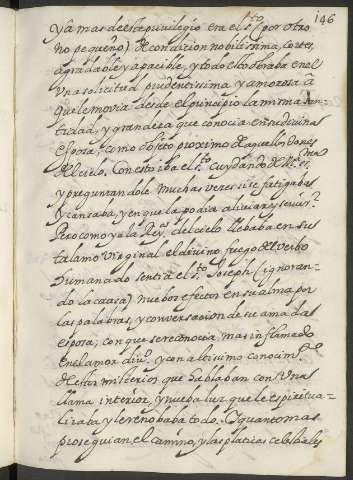 146
y a mas de este privilegio era el s.to (por otro
no pequeño) de condizion nobilissima, cortes,
agradable y apacible, y todo esto obraba en el
una solicitud prudentissima y amorosa à
que le movia desde el principio la misma san-
tidad, y grandeza que conocia en su divina
esposa, como objeto proximo de aquellos dones
del cielo. Con esto iba el s.to cuydando de M.a ss.ma
y preguntandole muchas veces si se fatigaba
y cansaba, y en que la podia aliviar y servir?
Pero como ya la Rey.a del cielo llebaba en su
talamo virginal el divino fuego del verbo
humanado sentia el s.to Joseph (ignoran-
do la causa) nuebos efectos en su alma por
las palabras, y conversacion de su amada
esposa; con que se reconocia mas inflamado
en el amor div.o y con altisimo conocim.to
de los misterios que hablaban con una
llama interior, y nueba luz que le espiritua-
lizaba y le renobaba todo. Y quanto mas
proseguian el camino, y las platicas celestiales